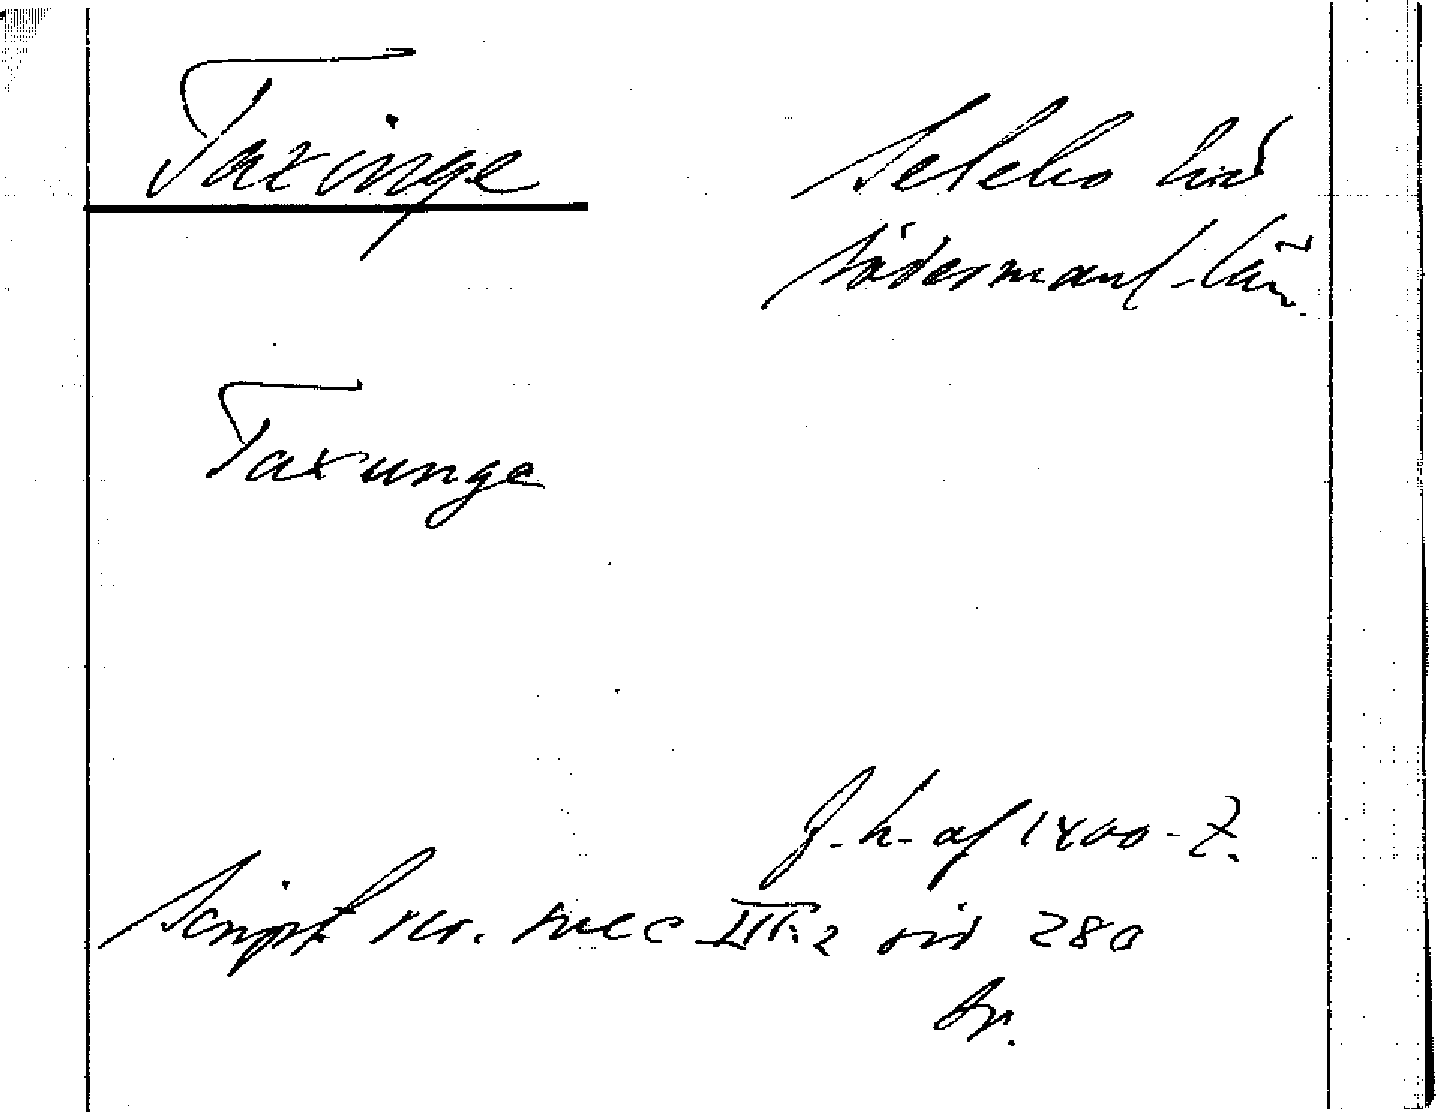 Taxinge Selebo hd
Södermanl. län.
Taxunge
f. h. af 1400-t.
Script rer. svec III:2 sid 280
tr.